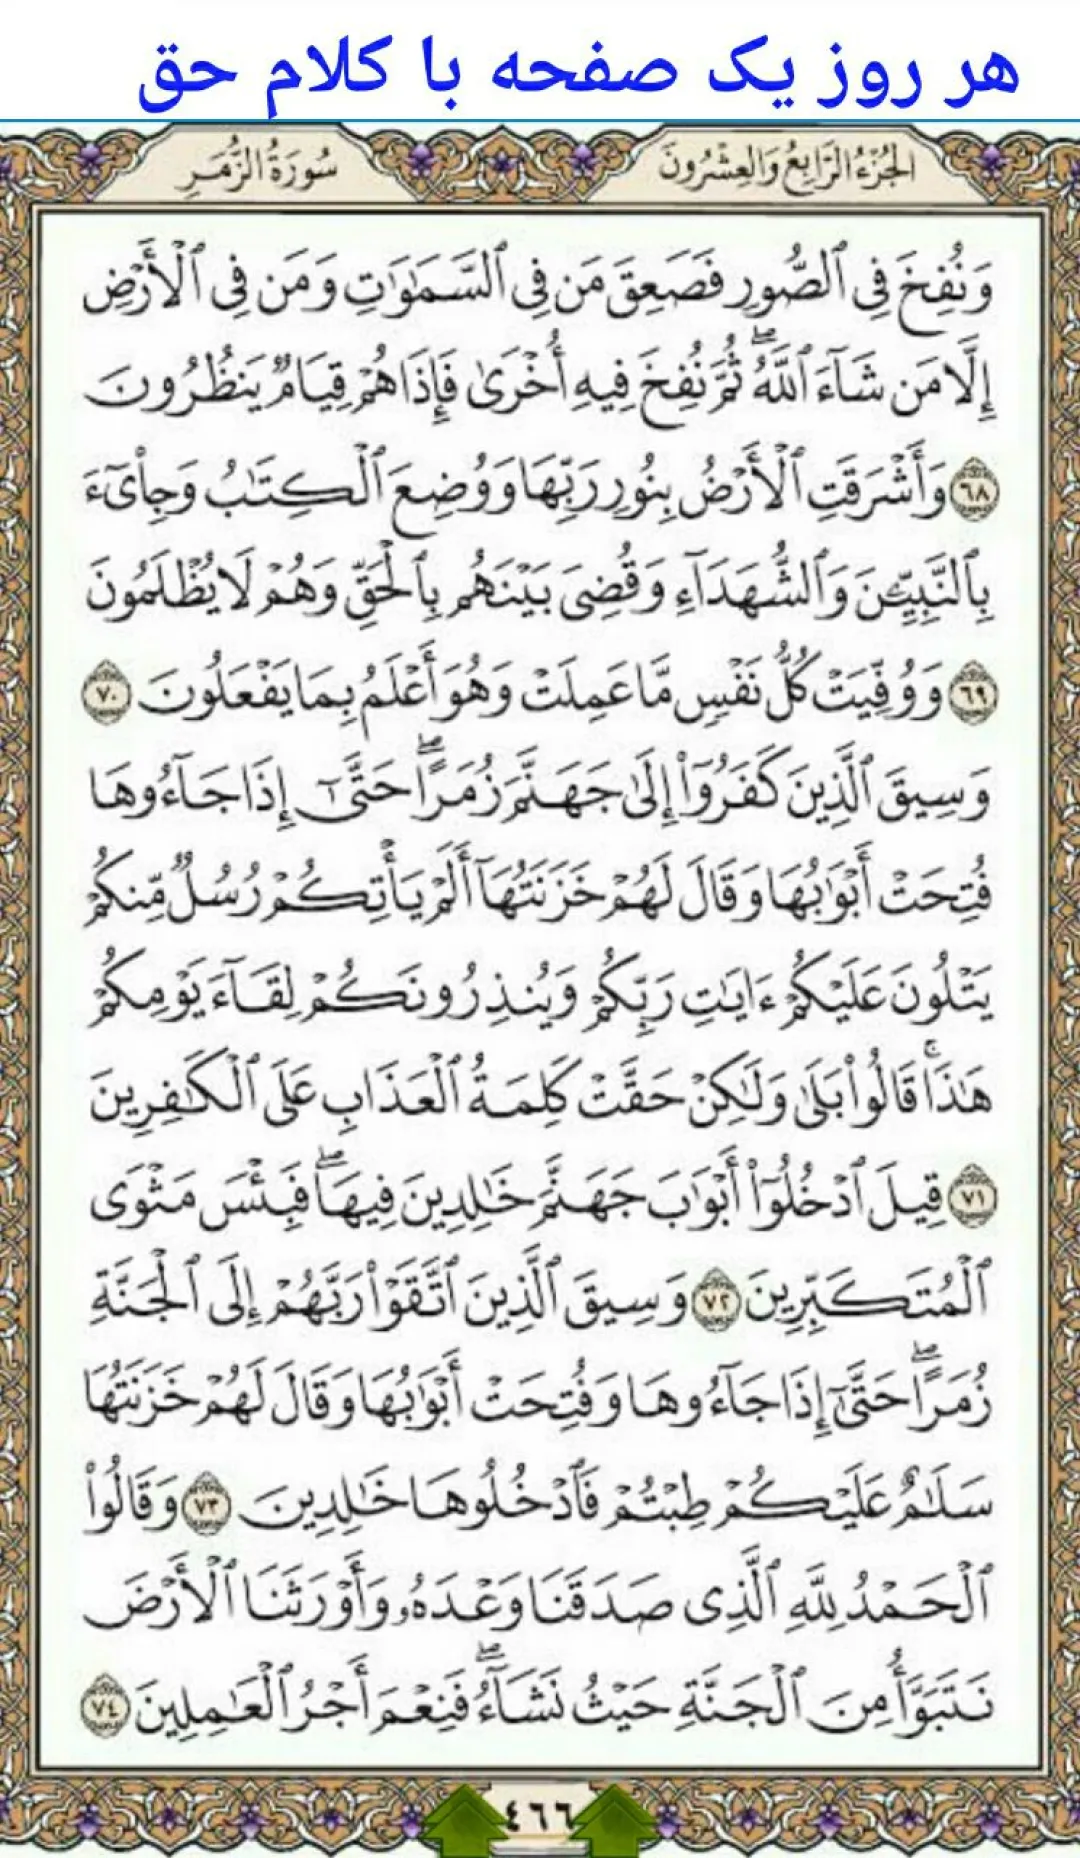 هر روز یک صفحه با کلام حق
الجُزْءُ الرَّابِعُ وَالعِشْرُونَ
سُورَةُ الزُّمَرِ
وَنُفِخَ فِى ٱلصُّورِ فَصَعِقَ مَن فِى ٱلسَّمَٰوَٰتِ وَمَن فِى ٱلْأَرْضِ
إِلَّا مَن شَآءَ ٱللَّهُ ۖ ثُمَّ نُفِخَ فِيهِ أُخْرَىٰ فَإِذَا هُمْ قِيَامٌ يَنظُرُونَ
٦٨ وَأَشْرَقَتِ ٱلْأَرْضُ بِنُورِ رَبِّهَا وَوُضِعَ ٱلْكِتَٰبُ وَجِا۟ىٓءَ
بِٱلنَّبِيِّۦنَ وَٱلشُّهَدَآءِ وَقُضِىَ بَيْنَهُم بِٱلْحَقِّ وَهُمْ لَا يُظْلَمُونَ
٦٩ وَوُفِّيَتْ كُلُّ نَفْسٍ مَّا عَمِلَتْ وَهُوَ أَعْلَمُ بِمَا يَفْعَلُونَ ٧٠
وَسِيقَ ٱلَّذِينَ كَفَرُوٓا۟ إِلَىٰ جَهَنَّمَ زُمَرًا ۖ حَتَّىٰٓ إِذَا جَآءُوهَا
فُتِحَتْ أَبْوَٰبُهَا وَقَالَ لَهُمْ خَزَنَتُهَآ أَلَمْ يَأْتِكُمْ رُسُلٌ مِّنكُمْ
يَتْلُونَ عَلَيْكُمْ ءَايَٰتِ رَبِّكُمْ وَيُنذِرُونَكُمْ لِقَآءَ يَوْمِكُمْ
هَٰذَا ۚ قَالُوا۟ بَلَىٰ وَلَٰكِنْ حَقَّتْ كَلِمَةُ ٱلْعَذَابِ عَلَى ٱلْكَٰفِرِينَ
٧١ قِيلَ ٱدْخُلُوٓا۟ أَبْوَٰبَ جَهَنَّمَ خَٰلِدِينَ فِيهَا ۖ فَبِئْسَ مَثْوَى
ٱلْمُتَكَبِّرِينَ ٧٢ وَسِيقَ ٱلَّذِينَ ٱتَّقَوْا۟ رَبَّهُمْ إِلَى ٱلْجَنَّةِ
زُمَرًا ۖ حَتَّىٰٓ إِذَا جَآءُوهَا وَفُتِحَتْ أَبْوَٰبُهَا وَقَالَ لَهُمْ خَزَنَتُهَا
سَلَٰمٌ عَلَيْكُمْ طِبْتُمْ فَٱدْخُلُوهَا خَٰلِدِينَ ٧٣ وَقَالُوا۟
ٱلْحَمْدُ لِلَّهِ ٱلَّذِى صَدَقَنَا وَعْدَهُۥ وَأَوْرَثَنَا ٱلْأَرْضَ
نَتَبَوَّأُ مِنَ ٱلْجَنَّةِ حَيْثُ نَشَآءُ ۖ فَنِعْمَ أَجْرُ ٱلْعَٰمِلِينَ ٧٤
٤٦٦